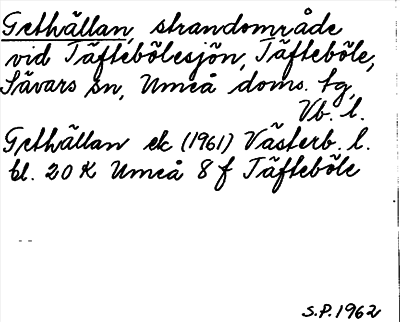 Gethällan, strandområde
vid Täftebölesjön, Täfteböle,
Sävars sn, Umeå doms. tg,
Vb. l.
Gethällan ek (1961) Västerb. l.
bl. 20 K Umeå 8 f Täfteböle
S.P. 1962